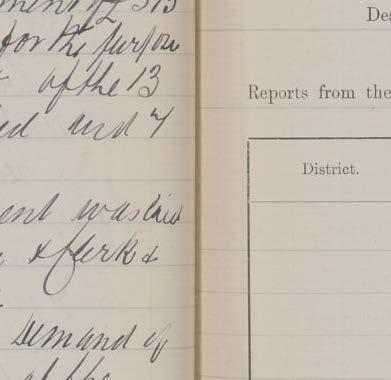 for the purpose
of the 13
and 4
was
& Clerk &
Demand of
of the
Des
Reports from the
District.